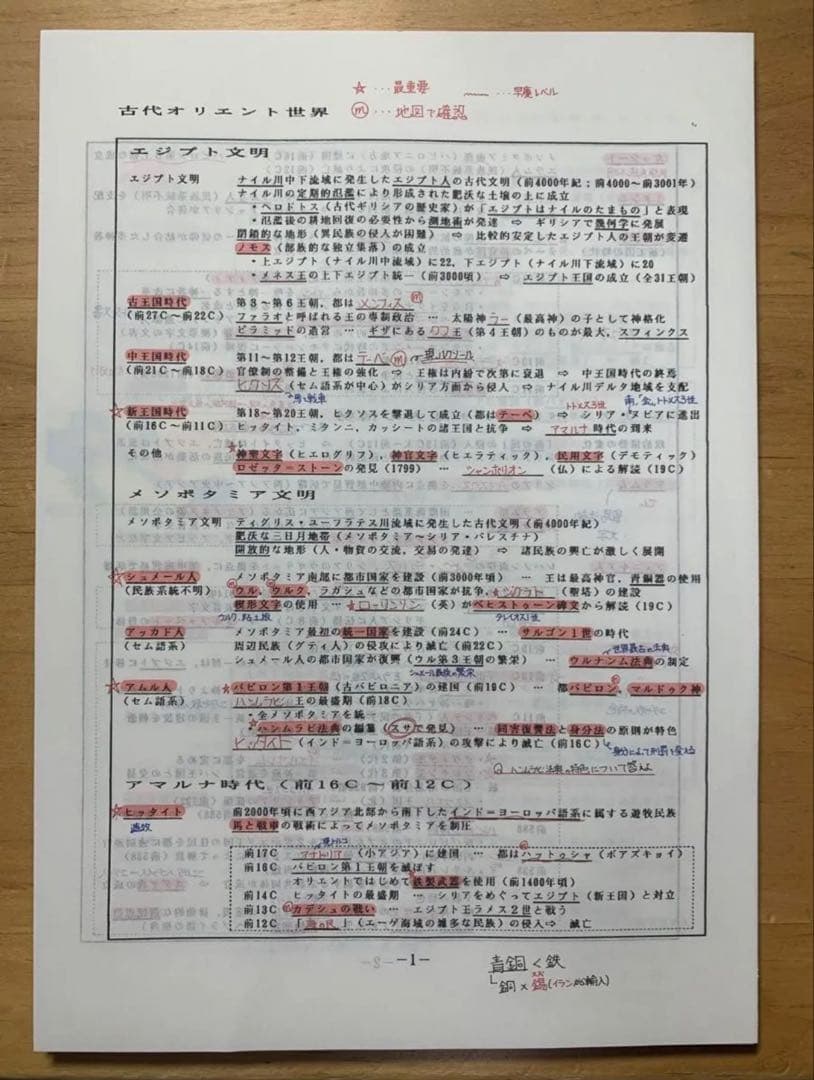 ☆…最重要 〰…早慶レベル
古代オリエント世界 ⓜ…地図で確認
エジプト文明
エジプト文明 ナイル川中下流域に発生したエジプト人の古代文明（前4000年紀；前4000～前3001年）
ナイル川の定期的氾濫により形成された肥沃な土壌の上に成立
・ヘロドトス（古代ギリシアの歴史家）が「エジプトはナイルのたまもの」と表現
・氾濫後の耕地回復の必要性から測地術が発達 ⇨ ギリシアで幾何学に発展
閉鎖的な地形（異民族の侵入が困難） ⇨ 比較的安定したエジプト人の王朝が変遷
ノモス（部族的な独立集落）の成立
・上エジプト（ナイル川中流域）に22，下エジプト（ナイル川下流域）に20
・メネス王の上下エジプト統一（前3000頃） ⇨ エジプト王国の成立（全31王朝）
古王国時代 第3～第6王朝，都はメンフィス ⓜ
（前27C～前22C） ファラオと呼ばれる王の専制政治 … 太陽神ラー（最高神）の子として神格化
ピラミッドの造営 … ギザにあるクフ王（第4王朝）のものが最大，スフィンクス
中王国時代 第11～第12王朝，都はテーベ ⓜ 現ルクソール
（前21C～前18C） 官僚制の整備と王権の強化 ⇨ 王権は内紛で次第に衰退 ⇨ 中王国時代の終焉
ヒクソス（セム語系が中心）がシリア方面から侵入 ⇨ ナイル川デルタ地域を支配
馬と戦車
トトメス3世
☆新王国時代 第18～第20王朝，ヒクソスを撃退して成立（都はテーベ） ⇨ シリア・ヌビアに進出
（前16C～前11C） ヒッタイト，ミタンニ，カッシートの諸王国と抗争 ⇨ アマルナ時代の到来
その他 ☆神聖文字（ヒエログリフ），神官文字（ヒエラティック），民用文字（デモティック）
ロゼッタ＝ストーンの発見（1799） … シャンポリオン（仏）による解読（19C）
メソポタミア文明
メソポタミア文明 ティグリス・ユーフラテス川流域に発生した古代文明（前4000年紀）
肥沃な三日月地帯（メソポタミア～シリア・パレスチナ）
開放的な地形（人・物資の交流，交易の発達） ⇨ 諸民族の興亡が激しく展開
☆シュメール人 メソポタミア南部に都市国家を建設（前3000年頃） … 王は最高神官，青銅器の使用
（民族系統不明） ウル，ウルク，ラガシュなどの都市国家が抗争，☆ジックラト（聖塔）の建設
楔形文字の使用 … ☆ローリンソン（英）がベヒストゥーン碑文から解読（19C）
ウルク、粘土板
アッカド人 メソポタミア最初の統一国家を建設（前24C） … サルゴン1世の時代
（セム語系） 周辺民族（グティ人）の侵攻により滅亡（前22C）
世界最古の法典
シュメール人の都市国家が復興（ウル第3王朝の繁栄） … ウルナンム法典の制定
☆アムル人 ☆バビロン第1王朝（古バビロニア）の建国（前19C） … 都バビロン，マルドゥク神
（セム語系） ハンムラビ王の最盛期（前18C）
・全メソポタミアを統一
・☆ハンムラビ法典の編纂（スサで発見） … 同害復讐法と身分法の原則が特色
ヒッタイト（インド＝ヨーロッパ語系）の攻撃により滅亡（前16C）
身分によって刑罰を変える
Q ハンムラビ法典の特色について答えよ
アマルナ時代（前16C～前12C）
☆ヒッタイト 前2000年頃に西アジア北部から南下したインド＝ヨーロッパ語系に属する遊牧民族
馬と戦車の戦術によってメソポタミアを制圧
前17C アナトリア（小アジア）に建国 … 都はハットゥシャ（ボアズキョイ）
前16C バビロン第1王朝を滅ぼす
オリエントではじめて鉄製武器を使用（前1400年頃）
前14C ヒッタイトの最盛期 … シリアをめぐってエジプト（新王国）と対立
前13C ⓜカデシュの戦い … エジプト王ラメス2世と戦う
前12C 「海の民」（エーゲ海域の雑多な民族）の侵入⇨ 滅亡
－1－
青銅＜鉄
銅×錫（イランから輸入）